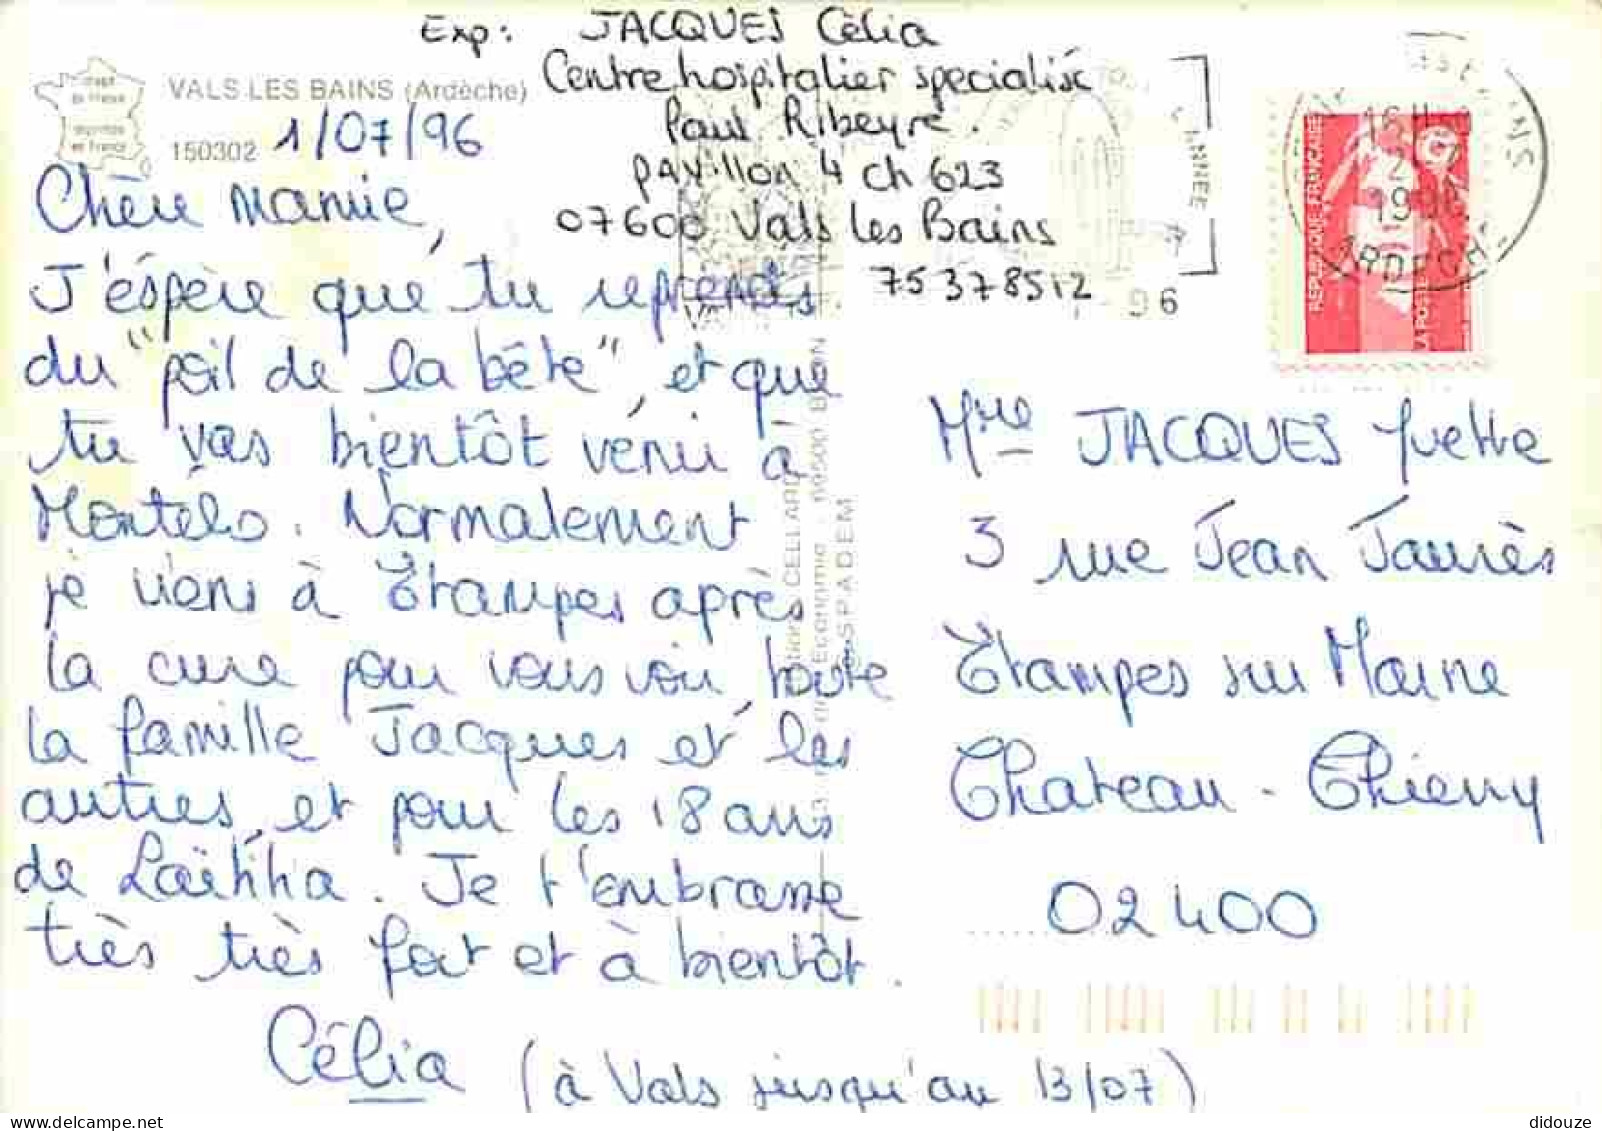 Exp: JACQUES Célia
Centre hospitalier specialisé
Paul Ribeyre.
pavillon 4 ch 623
07600 Vals les Bains
75 37 85 12
image de France
VALS LES BAINS (Ardèche)
150302 1/07/96
Chère Mamie,
J'éspère que tu reprends
du "poil de la bête", et que
tu vas bientôt vénir à
Montélo. Normalement
je viens à Etampes après
la cure pour vous voir, toute
la famille Jacques et les
autres, et pour les 18 ans
de Laëtitia. Je t'embrasse
très très fort et à bientôt.
Célia (à Vals jusqu'au 13/07)
CELLARD
69500 BRON
SPADEM
96
REPUBLIQUE FRANÇAISE
LA POSTE
16H
2-7
1996
ARDECHE
Mme JACQUES Yvette
3 rue Jean Jaurès
Etampes sur Marne
Chateau-Thierry
02400
didouze